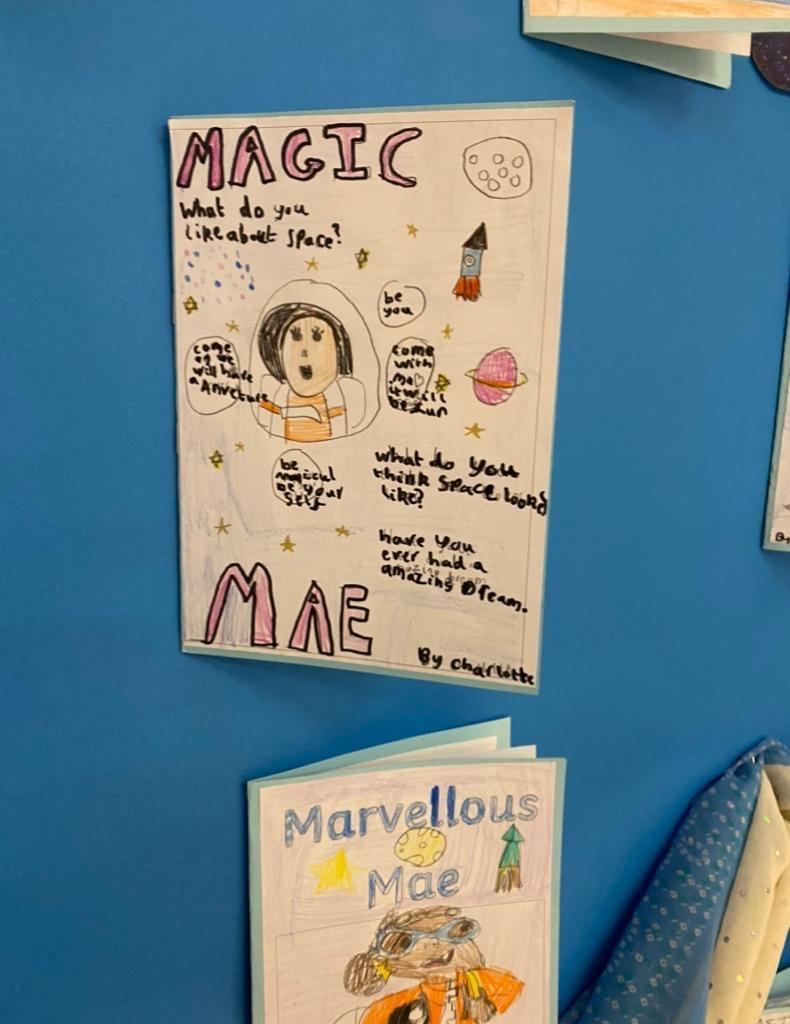 MAGIC
What do you
like about space?
be
you
come
with
me
it will
be fun
come
will have
a Anveture
be
magical
be your
self
what do you
think space looks
like?
have you
ever had a
amazing dream.
MAE
By charlotte
Marvellous
Mae
By